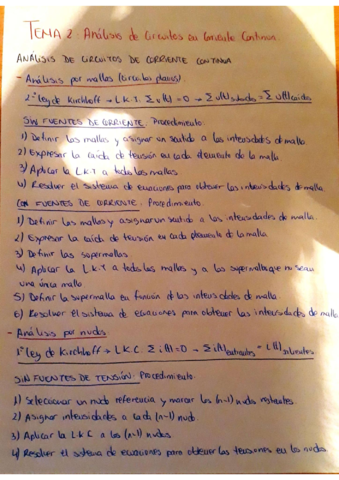 TEMA 2: Análisis de Circuitos en Corriente Continua.
ANÁLISIS DE CIRCUITOS DE CORRIENTE CONTINUA
- Análisis por mallas (circuitos planos).
2ª ley de Kirchhoff → L.K.T. Σ u(t) = 0 → Σ u(t) subidas = Σ u(t) caídas
SIN FUENTES DE CORRIENTE: Procedimiento:
1) Definir las mallas y asignar un sentido a las intensidades de malla
2) Expresar la caída de tensión en cada elemento de la malla
3) Aplicar la L.K.T a todas las mallas
4) Resolver el sistema de ecuaciones para obtener las intensidades de malla.
CON FUENTES DE CORRIENTE: Procedimiento:
1) Definir las mallas y asignar un sentido a las intensidades de malla.
2) Expresar la caída de tensión en cada elemento de la malla.
3) Definir las supermallas
4) Aplicar la L.K.T a todas las mallas y a las supermallas que no sean
una única malla
5) Definir la supermalla en función de las intensidades de malla
6) Resolver el sistema de ecuaciones para obtener las intensidades de malla
- Análisis por nudos.
1ª ley de Kirchhoff → L.K.C. Σ i(t) = 0 → Σ i(t) entrantes = i(t) salientes.
SIN FUENTES DE TENSIÓN: Procedimiento:
1) Seleccionar un nudo referencia y marcar los (n-1) nudos restantes.
2) Asignar intensidades a cada (n-1) nudo.
3) Aplicar la L.K.C a los (n-1) nudos.
4) Resolver el sistema de ecuaciones para obtener las tensiones en los nudos